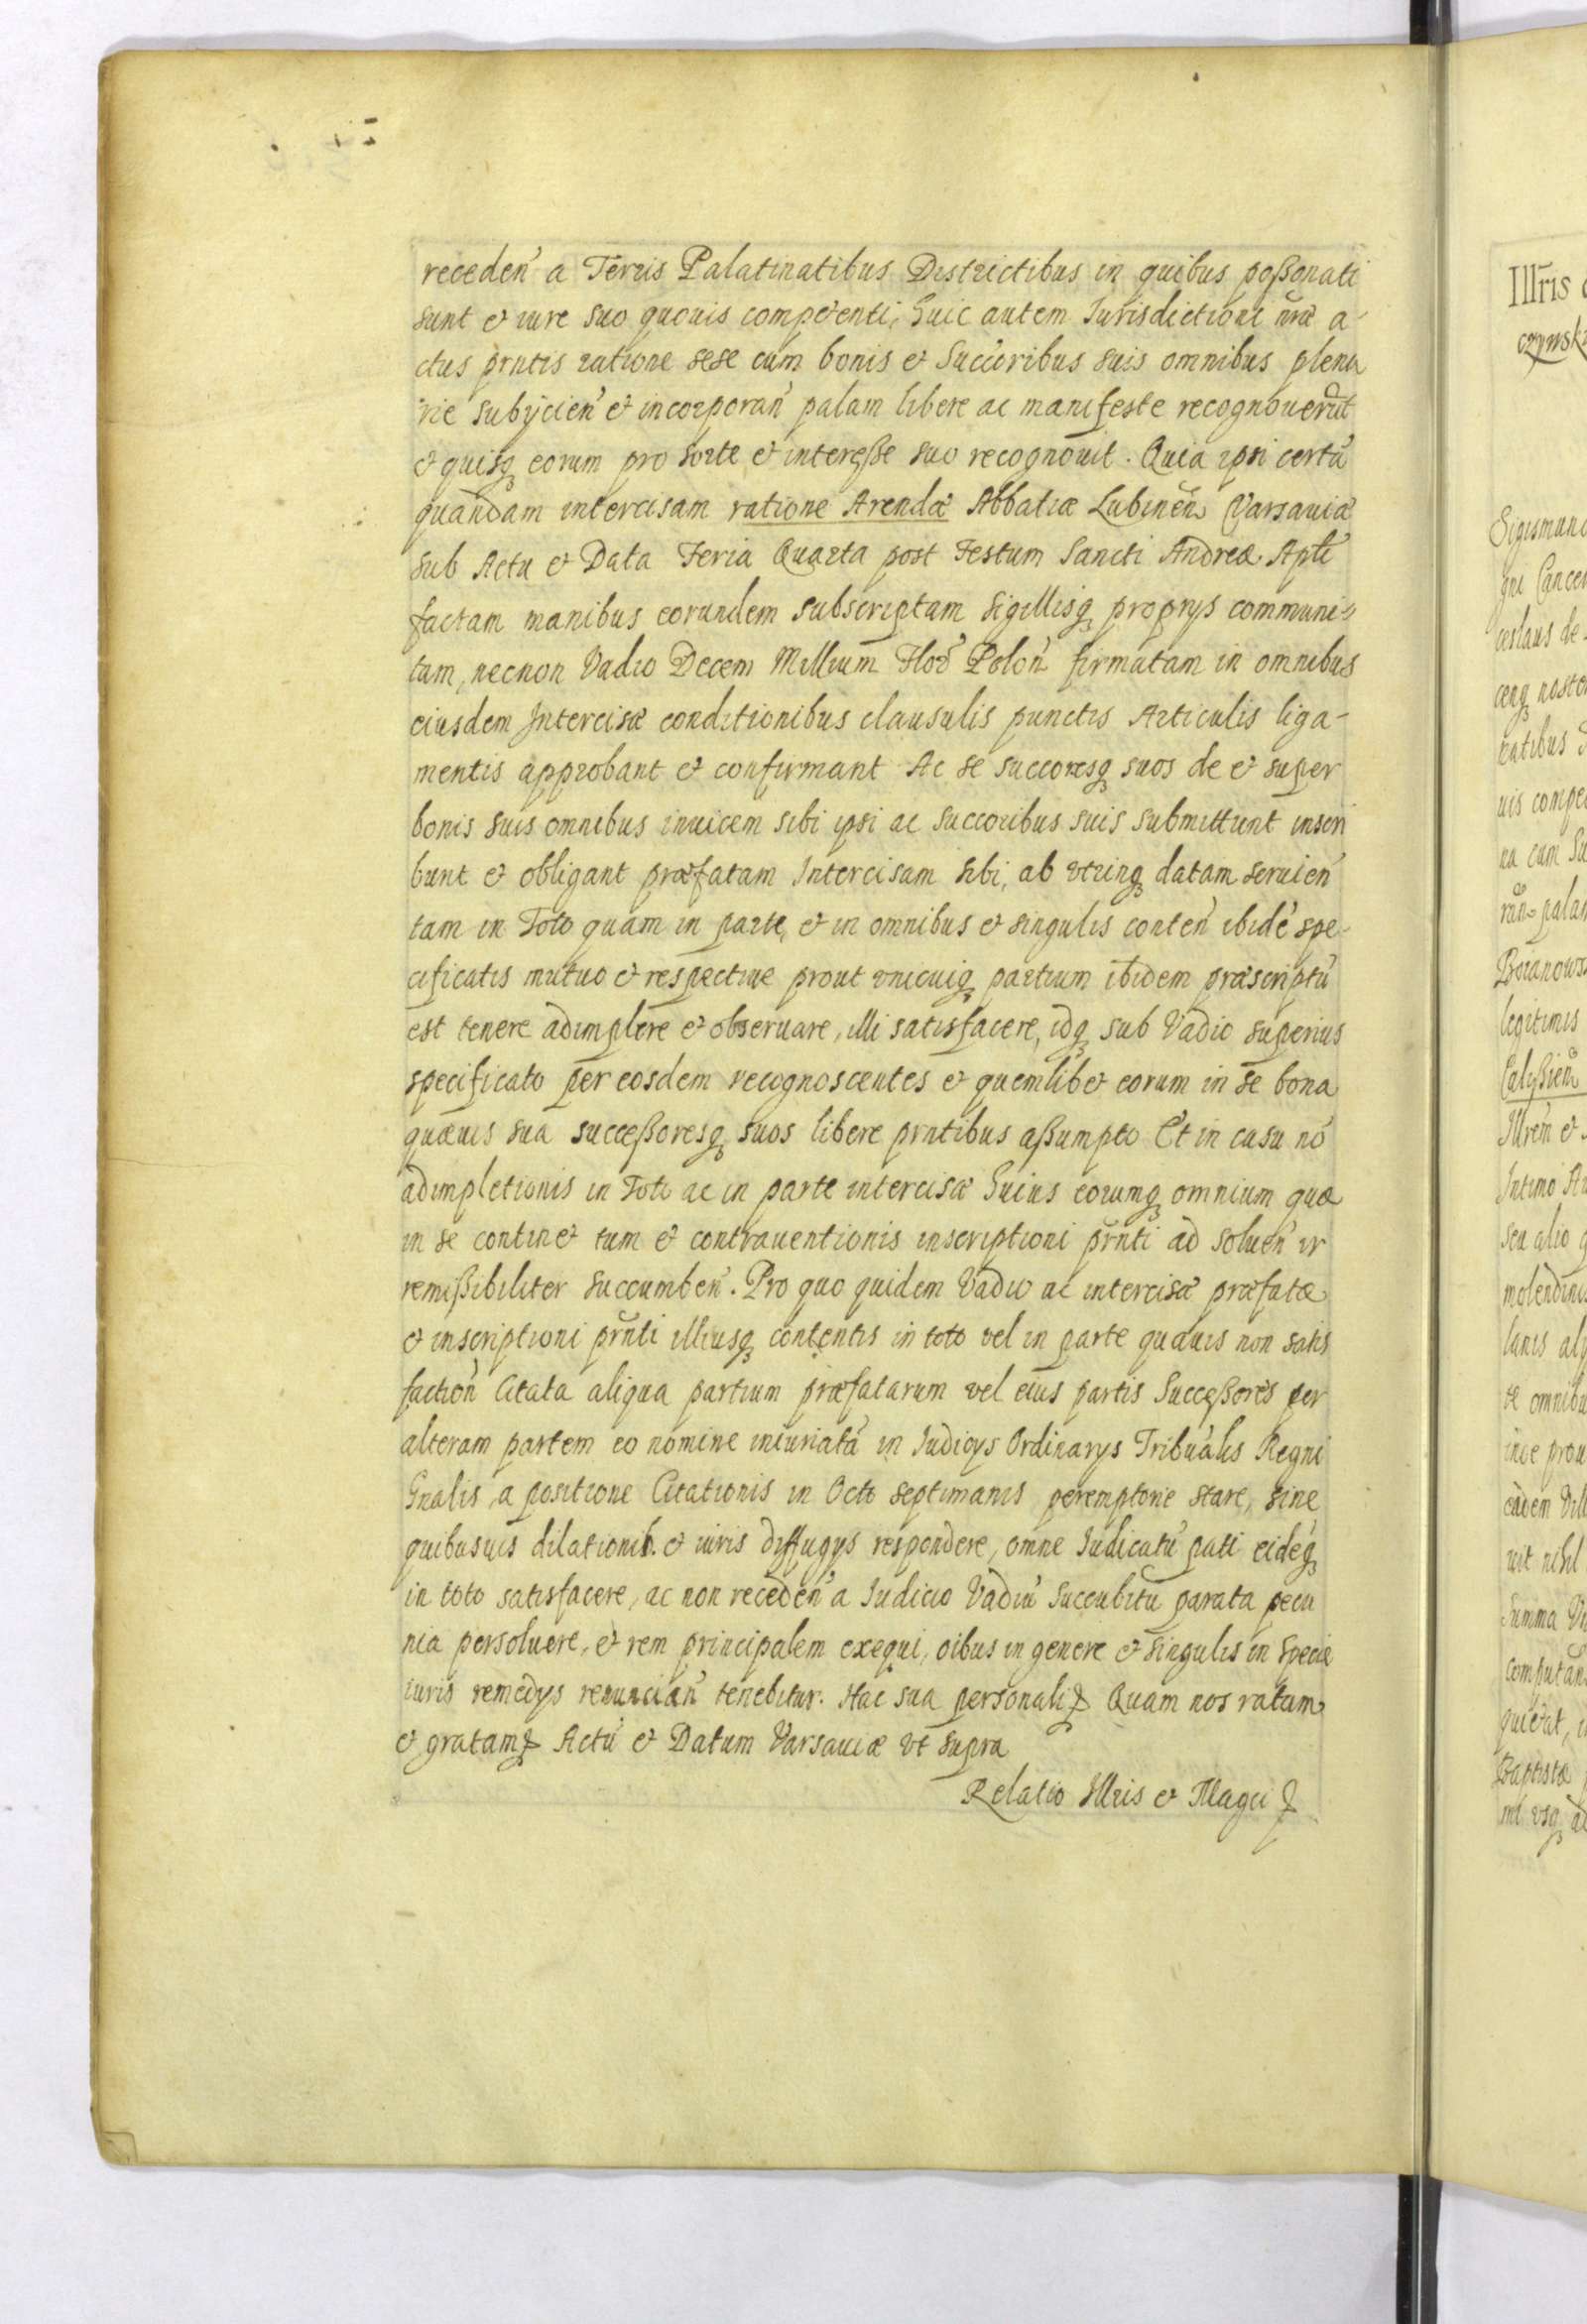 receden̄ a Terris Palatinatibus Districtibus in quibus poßonati
sunt et iure suo quouis competenti, huic autem Iurisdictioni nr̄æ a-
ctus prñtis ratione sese cum bonis et Succõribus suis omnibus plena
rie subijcien̄ et incorporan̄ palam libere ac manifeste recognouerūt
et quisq; eorum pro sorte et intereße suo recognouit. Quia ipsi certā
quandam intercisam ratione Arendæ Abbatiæ Lubinen̄ Varsauiæ
sub Actu et Data Feria Quarta post Festum Sancti Andreæ Apli
factam manibus eorundem subscriptam sigillisq; proprys communi-
tam, necnon Vadio Decem Millium Flor̄ Polon̄ firmatam in omnibus
eiusdem Intercisæ conditionibus clausulis punctis Articulis liga-
mentis approbant et confirmant Ac se succoresq; suos de et super
bonis suis omnibus inuicem sibi ipsi ac succoribus suis submittunt inscri
bunt et obligant præfatam Intercisam sibi, ab vtrinq; datam seruien̄
tam in Toto quam in parte, et in omnibus et singulis conten̄ ibidē spe-
cificatis mutuo et respectiue prout vnicuiq; partium ibidem præscriptū
est tenere adimplere et obseruare, illi satisfacere, idq; sub Vadio superius
specificato per eosdem recognoscentes et quemlibet eorum in se bona
quæuis sua succeßoresq; suos libere prntibus aßumpto Et in casu nō
adimpletionis in Toto ac in parte intercisæ huius eorumq; omnium quæ
in se continet tum et contrauentionis inscriptioni prñti ad soluen̄ ir
remißibiliter succumben̄. Pro quo quidem Vadio ac intercisæ præfatæ
et inscriptioni prñti illiusq; contentis in toto vel in parte quauis non satis
faction̄ Citata aliqua partium præfatarum vel eius partis Succeßores per
alteram partem eo nomine iniuriatā in Iudicys Ordinarys Tribūalis Regni
Gnalis, a positione Citationis in Octo septimanis peremptorie stare, sine
quibusuis dilationib. et iuris diffugys respondere, omne Iudicatū pati eidēq;
in toto satisfacere, ac non receden̄ a Iudicio Vadiū succubitū parata pecu
nia persoluere, et rem principalem exequi, oibus in genere et singulis in specie
iuris remedys renuncian̄ tenebitur. Hac sua personali etc Quam nos ratam
et gratam etc Actū et Datum Varsauiæ vt supra
Relatio Illris et Magci etc
Illr̄is
czynsk